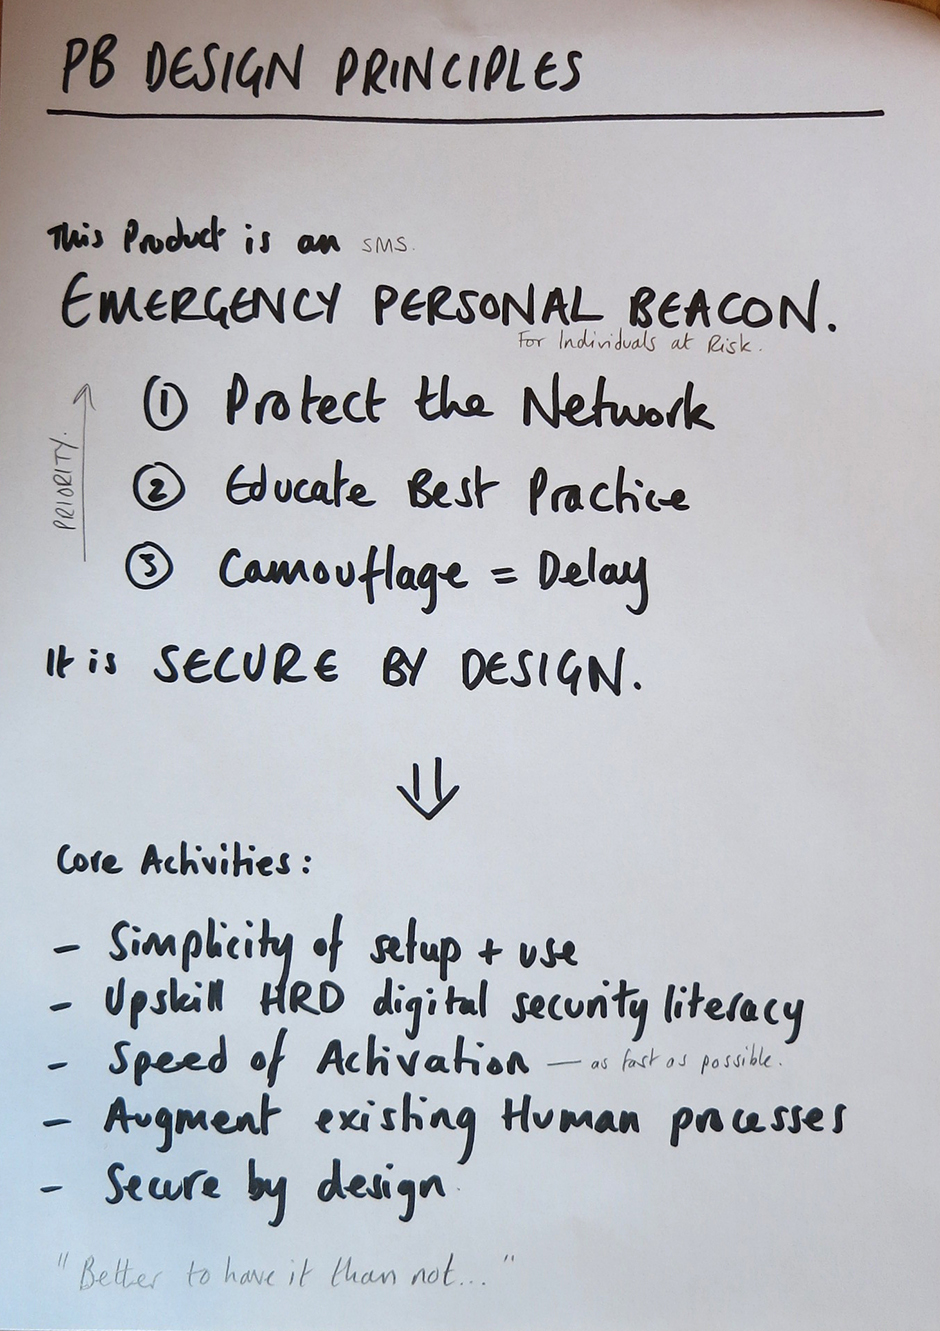 PB DESIGN PRINCIPLES
This Product is an SMS.
EMERGENCY PERSONAL BEACON.
For Individuals at Risk.
PRIORITY.
① Protect the Network
② Educate Best Practice
③ Camouflage = Delay
It is SECURE BY DESIGN.
⇓
Core Activities:
- Simplicity of setup + use
- Upskill HRD digital security literacy
- Speed of Activation — as fast as possible.
- Augment existing Human processes
- Secure by design
"Better to have it than not..."